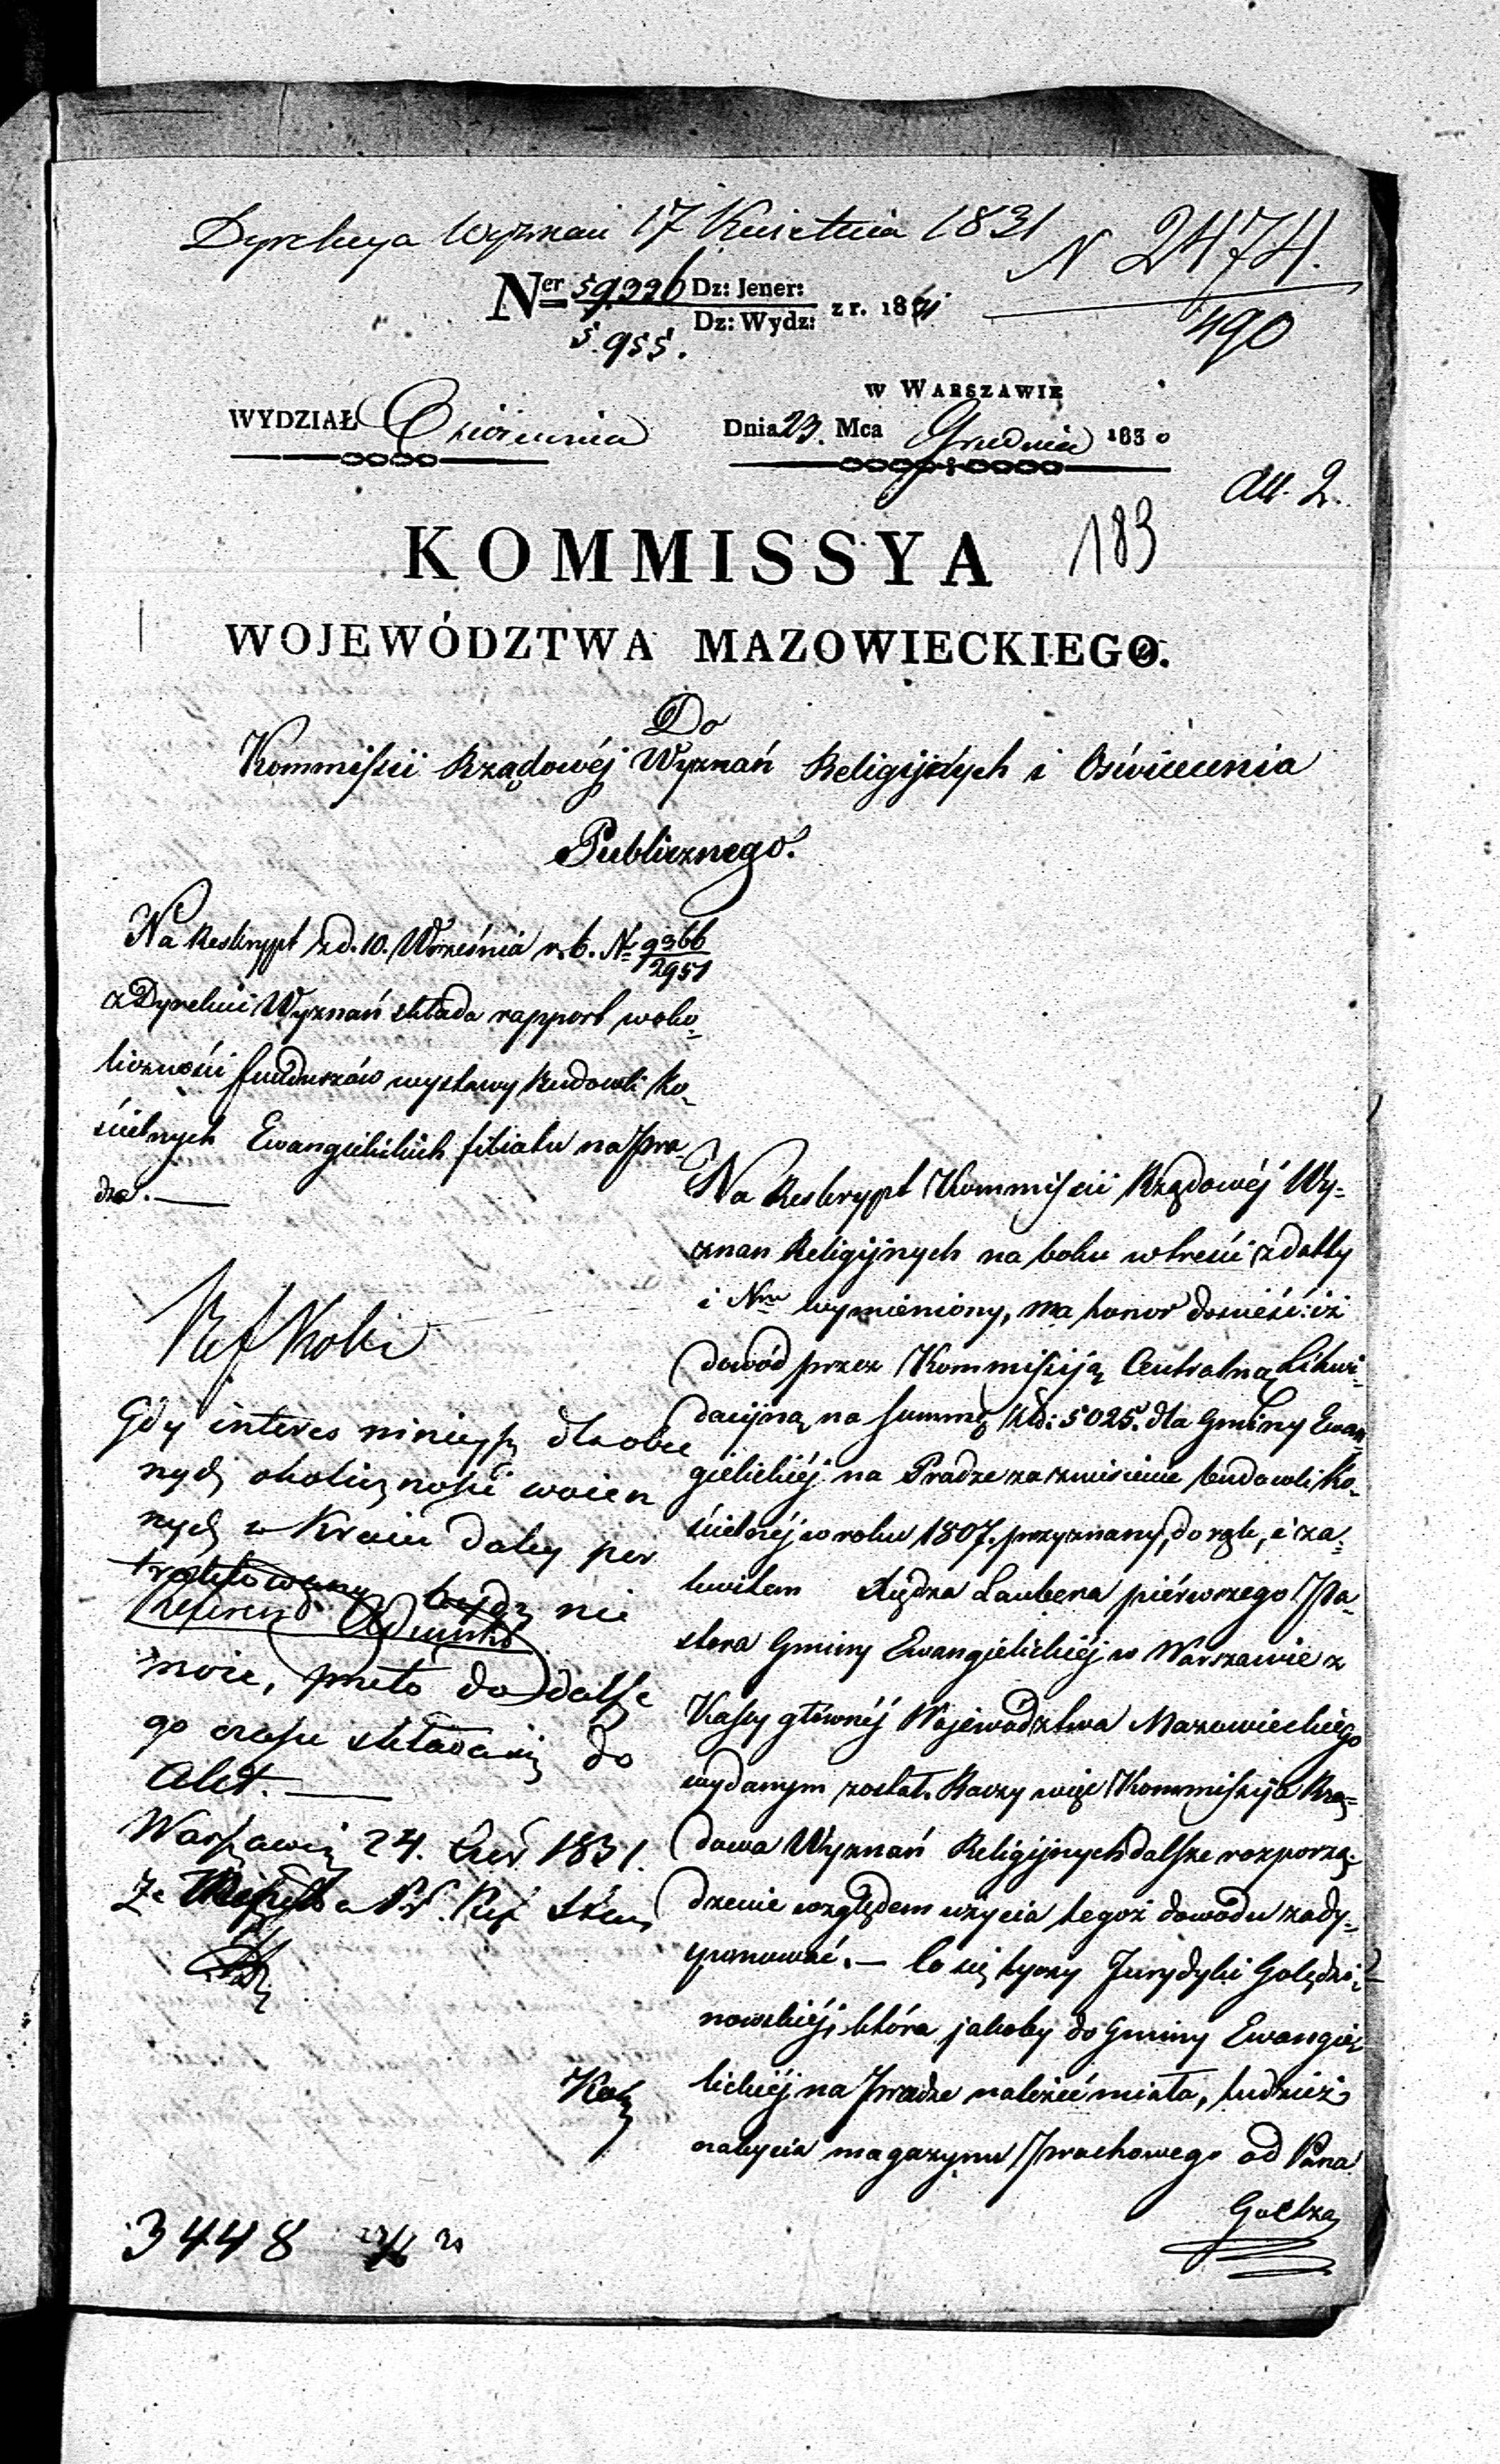 Dyrekcya Wyznań 17 Kwietnia 1831
N 2474.
490
Ner 59336 Dz: Jener:
5.955. Dz: Wydz: z r. 1831
w Warszawie
WYDZIAŁ Oświecenia
Dnia 23. Mca Grudnia 1830
All. 2.
183
KOMMISSYA
WOJEWÓDZTWA MAZOWIECKIEGO.
Do
Kommissii Rządowéj Wyznań Religijnych i Oświecenia
Publicznego.
Na Reskrypt z d. 10. Września r. b. Nr 9366
2951
z Dyrekcii Wyznań składa rapport w oko-
liczności funduszów wystawy budowli Ko-
ścielnych Ewangielickich filialu na Pra-
dze.
Na Reskrypt Kommissii Rządowéj Wy-
znan Religijnych na boku w treści z datty
i Nru wymieniony, ma honor donieść: iż
dowód przez Kommissiją Centralną Likwi-
dacijną na summę Złd: 5025. dla Gminy Ewan-
gielickiéj na Pradze za zniesienie budowli Ko-
ścielnéj w roku 1807. przyznany, do rąk, i za
kwitem Xiędza Laubera piérwszego Pa-
stora Gminy Ewangielickiéj w Warszawie z
Kassy głównéj Województwa Mazowieckiego
wydanym został. Raczy więc Kommissija Rzą-
dowa Wyznań Religijnych dalsze rozporzą-
dzenie względem użycia tegoż dowodu zady-
sponować. — Co się tyczy Jurydyki Golędzi-
nowskiéj, która jakoby do Gminy Ewangie-
lickiéj na Pradze należéć miała, tudzież
nabycia magazynu Prochowego od Pana
Goetza
Gdy interes ninieyszy dla obec
nych okoliczności woien
nych w Kraiu daley per
traktowany bydź nie
Referend
może, przeto do dalsze
go czasu składa się do
Akt.
Warszawie 24. Czer. 1831.
3448